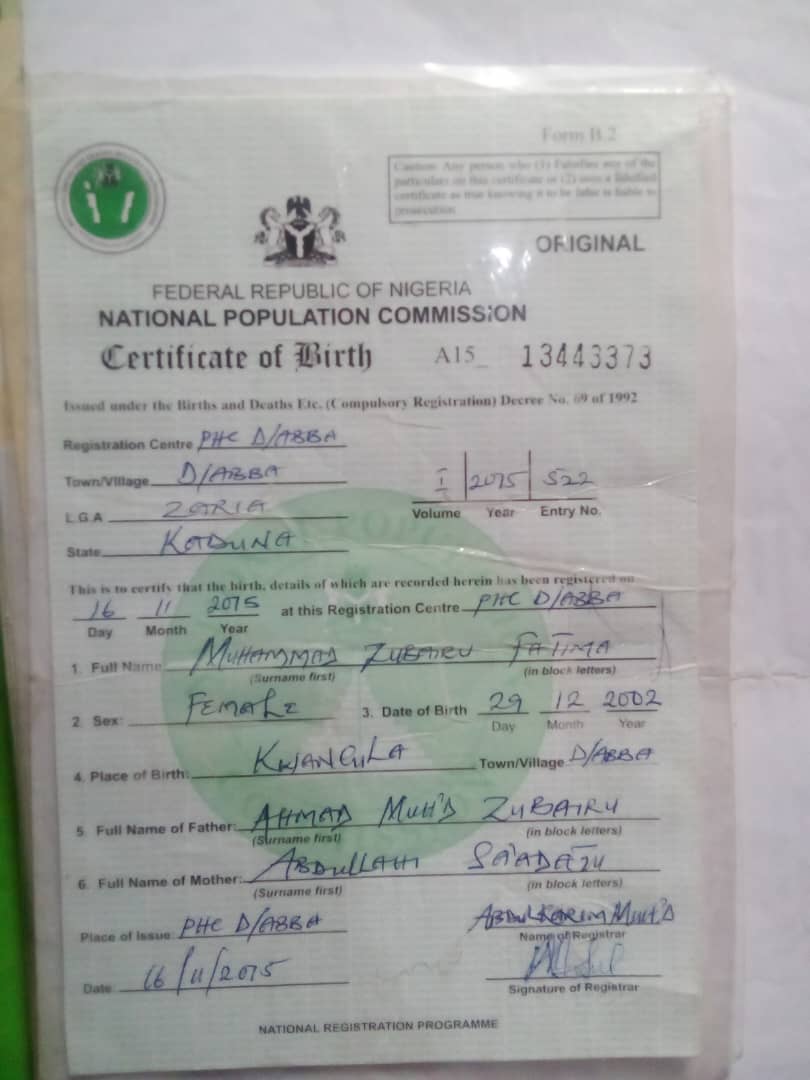 Form B.2
Caution: Any person who (1) Falsifies any of the
particulars on this certificate or (2) uses a falsified
certificate as true knowing it to be false is liable to
prosecution
ORIGINAL
FEDERAL REPUBLIC OF NIGERIA
NATIONAL POPULATION COMMISSION
Certificate of Birth A15_ 13443373
Issued under the Births and Deaths Etc. (Compulsory Registration) Decree No. 69 of 1992
Registration Centre PHC D/ABBA
Town/Village D/ABBA
I 2015 522
L.G.A ZARIA
Volume Year Entry No.
State KADUNA
This is to certify that the birth, details of which are recorded herein has been registered on
16 11 2015 at this Registration Centre PHC D/ABBA
Day Month Year
1. Full Name MUHAMMAD ZUBAIRU FATIMA
(Surname first) (in block letters)
2. Sex: FEMALE 3. Date of Birth 29 12 2002
Day Month Year
4. Place of Birth: KWANGILA Town/Village D/ABBA
5. Full Name of Father: AHMAD MUH'D ZUBAIRU
(Surname first) (in block letters)
6. Full Name of Mother: ABDULLAHI SA'ADATU
(Surname first) (in block letters)
Place of Issue: PHC D/ABBA ABDULKARIM MUH'D
Name of Registrar
Date: 16/11/2015
Signature of Registrar
NATIONAL REGISTRATION PROGRAMME